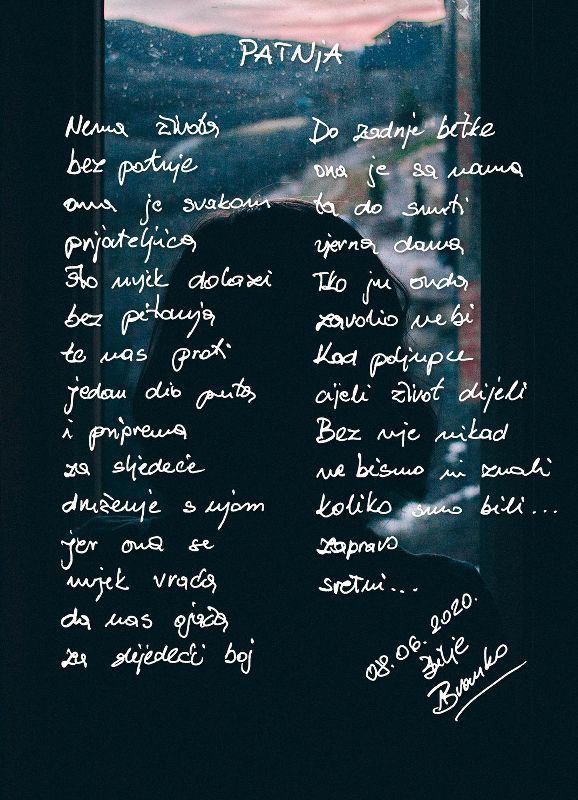 PATNJA
Nema života
bez patnje
ona je svakom
prijateljica
što uvjek dolazi
bez pitanja
te nas prati
jedan dio puta
i priprema
za sljedeće
druženje s njom
jer ona se
uvjek vraća
da nas ojača
za slijedeći boj
Do zadnje bitke
ona je sa nama
ta do smrti
vjerna dama
Tko ju onda
zavolio nebi
Kad poljupce
cijeli život dijeli
Bez nje nikad
ne bismo ni znali
koliko smo bili...
zapravo
sretni...
08.06.2020.
Žilje
Branko